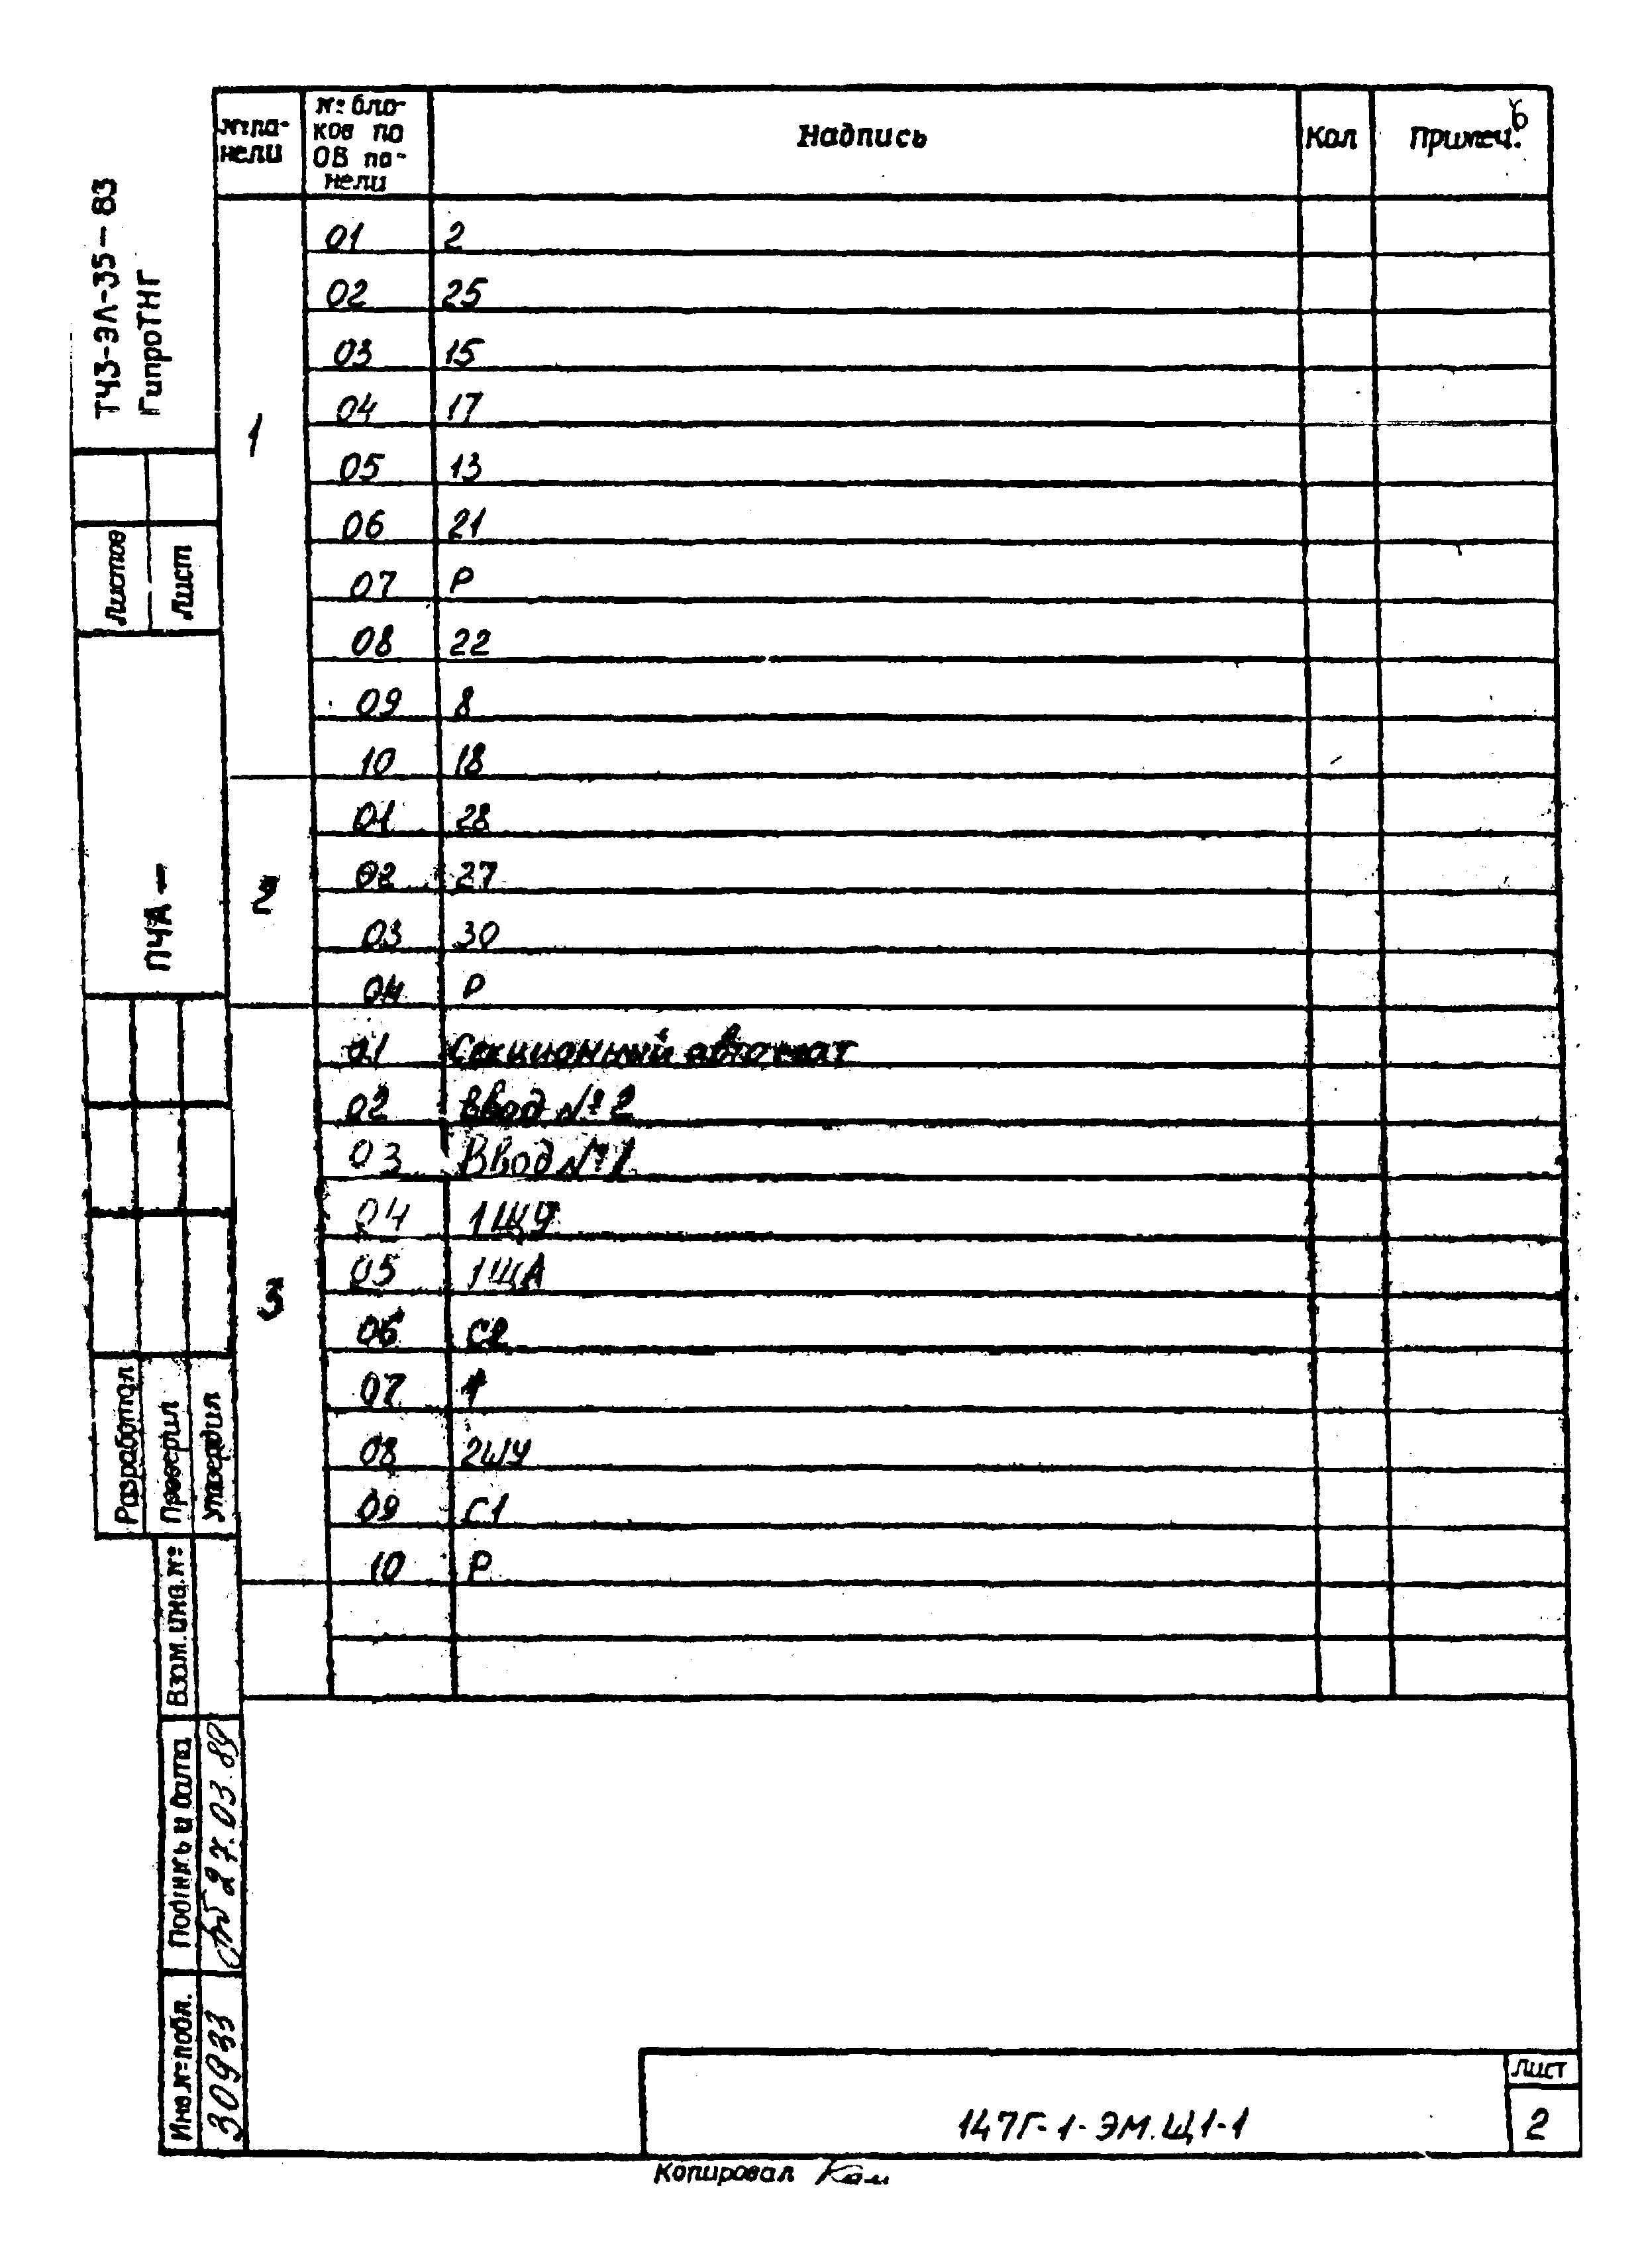 6
№ па-
нели
№ бло-
ков по
ОВ па-
нели
Надпись
Кол
Примеч.
1
01 2
02 25
03 15
04 17
05 13
06 21
07 Р
08 22
09 8
10 18
2
01 28
02 27
03 30
04 Р
3
01 Секционный автомат
02 Ввод №2
03 Ввод №1
04 1ЩУ
05 1ЩА
06 С2
07 1
08 2ЩУ
09 С1
10 Р
ТЧЗ-ЭЛ-35-83
ГипроТНГ
Листов
Лист
ПЧА -
Разработал
Проверил
Утвердил
Взам. инв. №
Подпись и дата
27.03.89
Инв. № подл.
30933
147Г-1-ЭМ.Щ1-1
Лист
2
Копировал